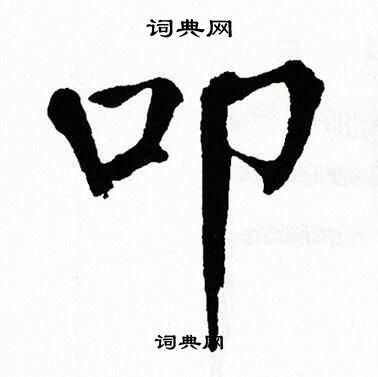 词典网
叩
词典网